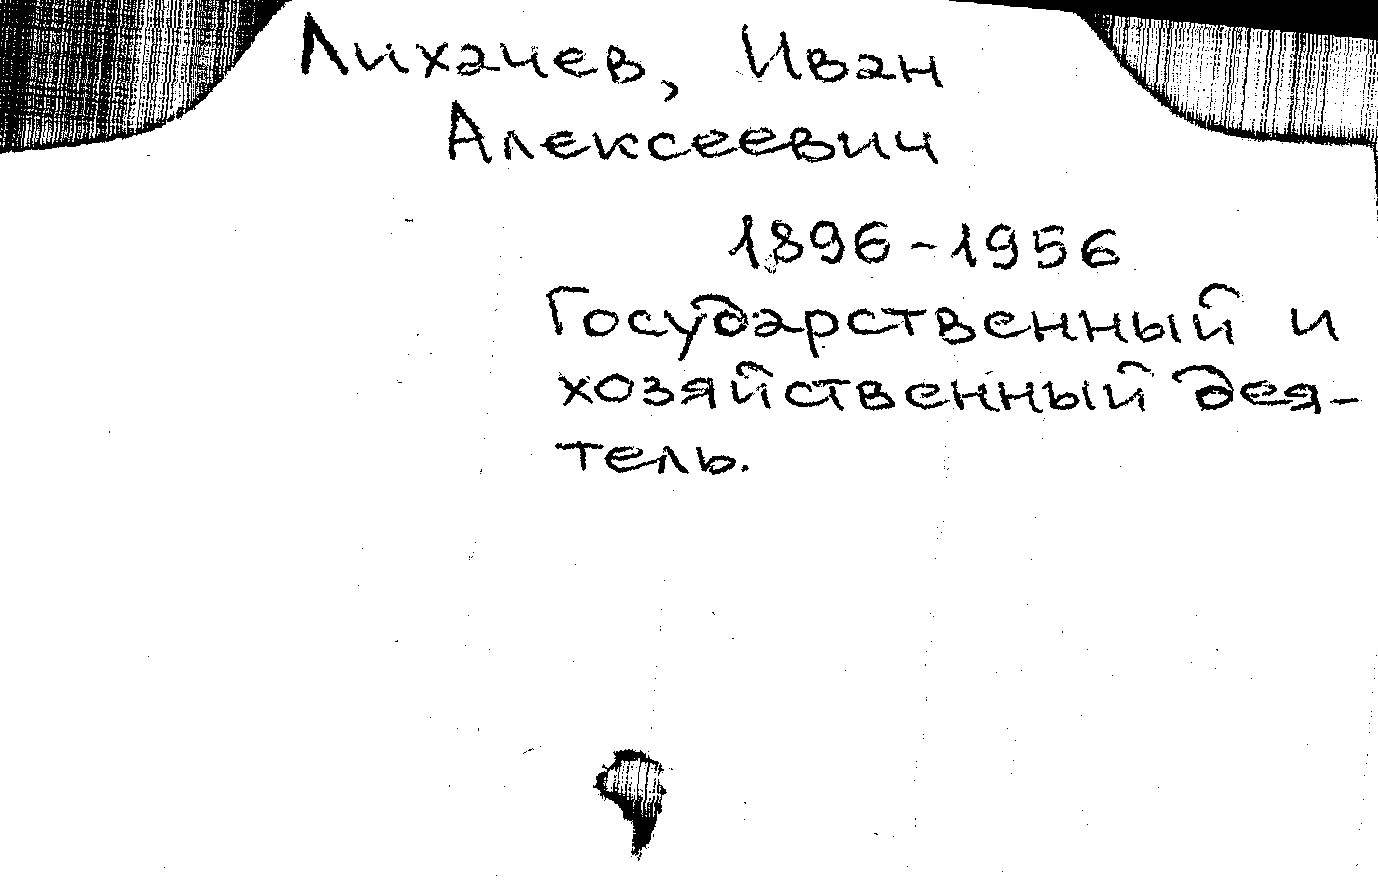 Лихачев, Иван
Алексеевич
1896-1956
Государственный и
хозяйственный дея-
тель.